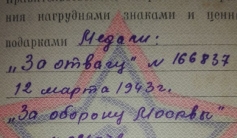 ния нагрудными знаками и ценн
подарками Медали:
„За отвагу" № 166837
12 марта 1943г.
„За оборону Москвы"